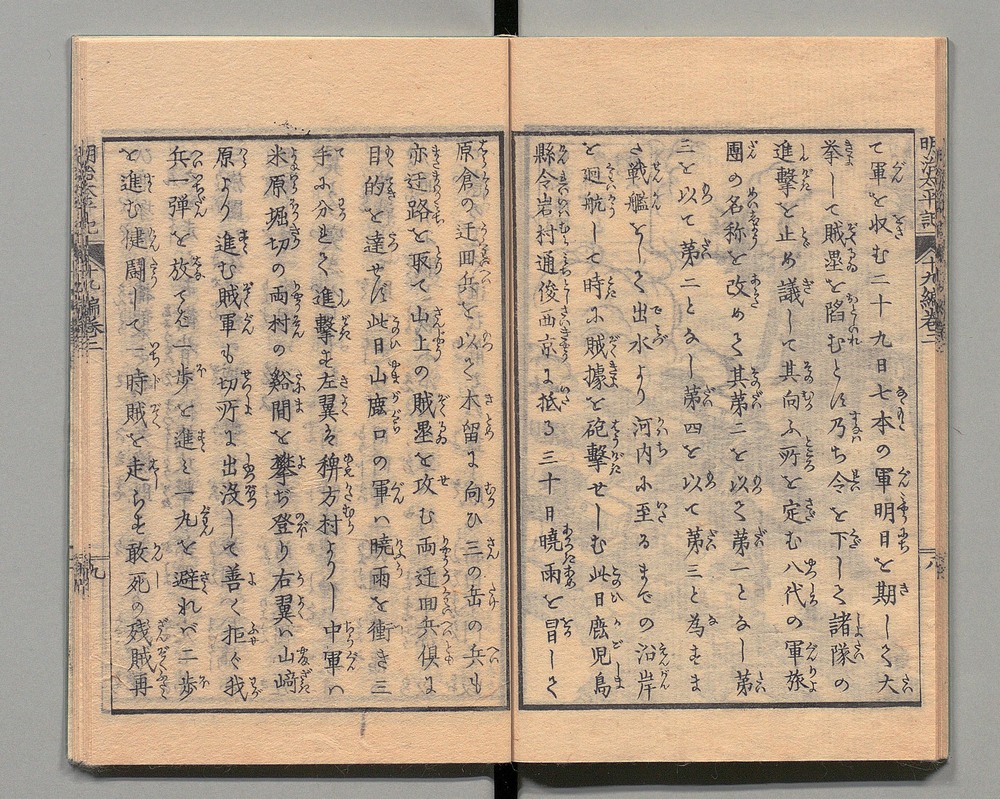 て軍を収む二十九日七本の軍明日を期して大
挙して賊塁を陥むとす乃ち令を下して諸隊の
進撃を止め議して其向ふ所を定む八代の軍旅
團の名称を改めて其第二を以て第一となし第
三を以て第二となし第四を以て第三と為すま
た戦艦をして出水より河内に至るまでの沿岸
を廻航して時に賊據を砲撃せしむ此日鹿児島
縣令岩村通俊西京に抵る三十日暁雨を冒して
原倉の迂回兵を以て木留に向ひ三の岳の兵も
亦迂路を取て山上の賊塁を攻む両迂回兵倶に
目的を達せず此日山鹿口の軍ハ暁雨を衝き三
手に分れて進撃す左翼は稗方村よりし中軍ハ
米原堀切の両村の谿間を攀ぢ登り右翼ハ山﨑
原より進む賊軍も切所に出没して善く拒ぐ我
兵一弾を放てば一歩を進ミ一丸を避れバ二歩
を進む健闘して一時賊を走らす敢死の残賊再
明治太平記
十九編巻二
八
明治太平記
十九編巻二
九